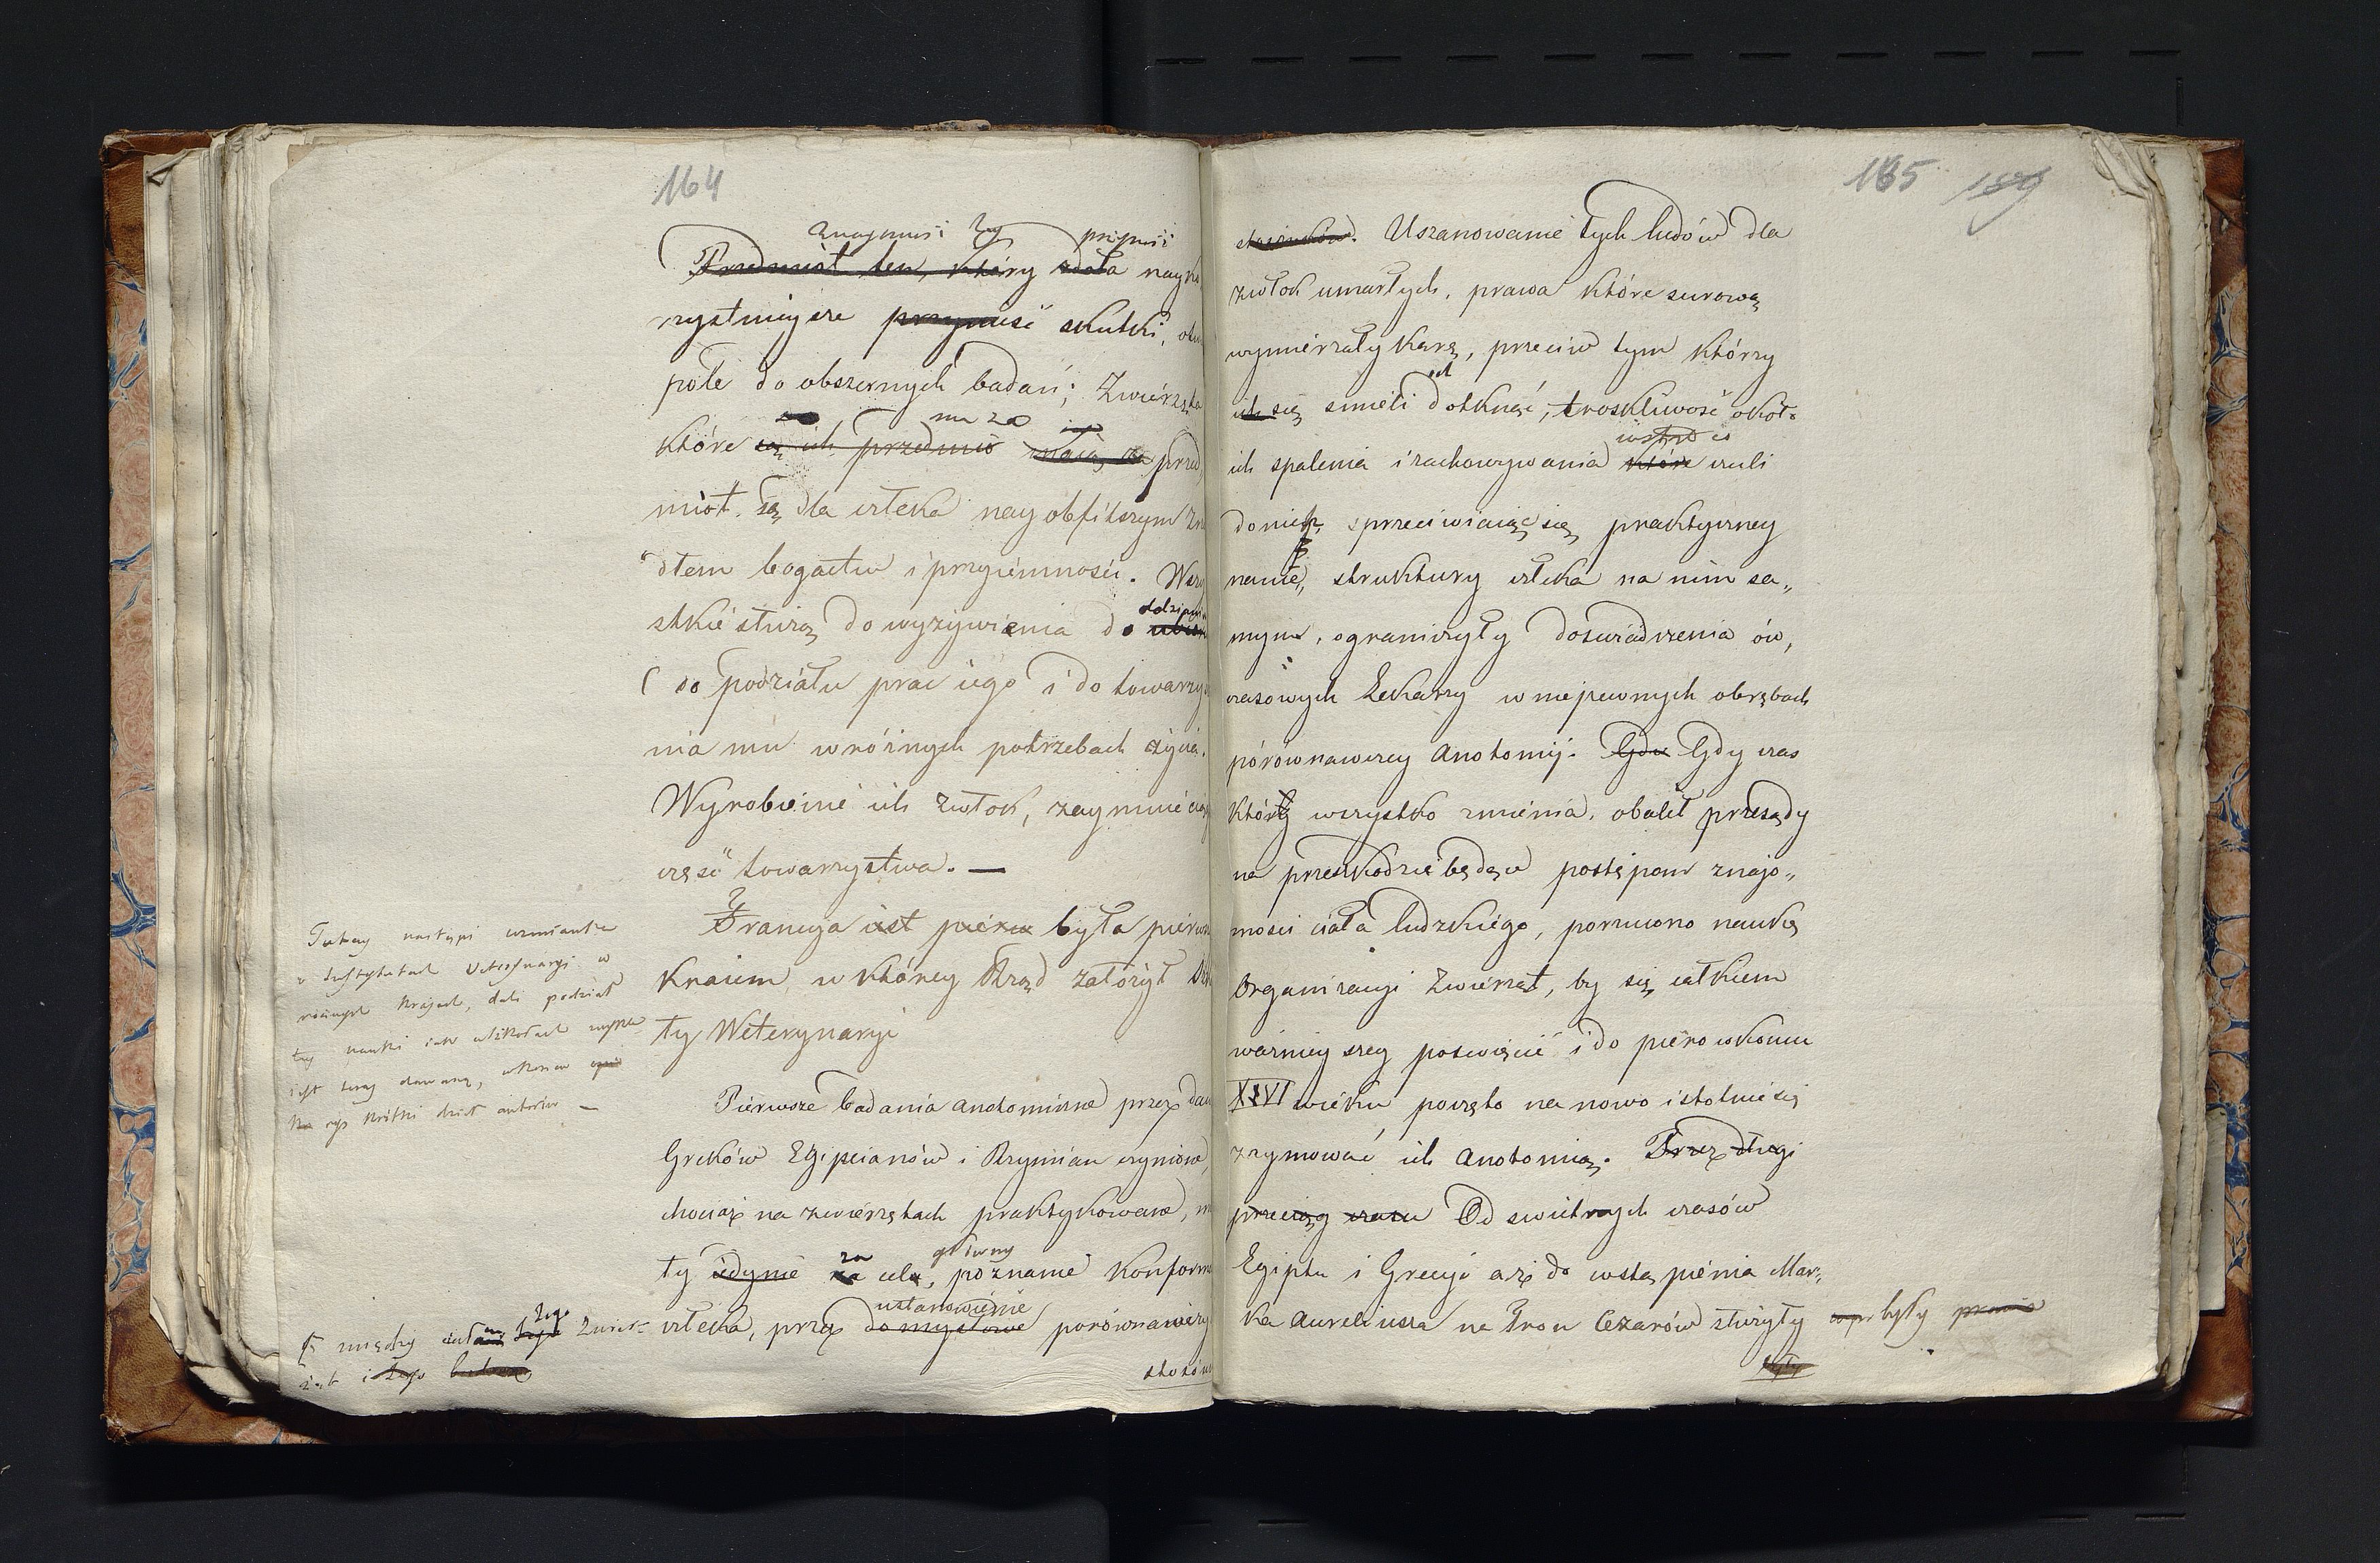 164
Znajomość tey przynieść
Przedmiot ten, który zdoła nayko
rzystnieysze przynieść skutki,
pole do obszernych badań; Zwierzęta
które są ich przedmio mu za przed
miot. są dla człeka nayobfitszym
dłem bogactw i przyiemności.
stkie służą do wyżywienia do odziania
do podziału prac iego i do towarzy
nia mu w róźnych potrzebach życia.
Wyrobienie ich zwłok, zaymuie
część towarzystwa. —
Francyja iest pierw była pierw
kraiem w którey Rząd założył
ty Weterynaryi
Pierwsze badania anatomiczne przez daw
Greków Egipcianów i Rzymian czynione,
chociaż na zwierzętach praktykowane, m
ty iedynie za cel główny, poznanie konform
człeka, przez ustanowienie domysłowe porównawczey
stosun
Tutay nastąpi wzmianka
o Instytutach Veterynaryi w
róźnych krajach, dali podział
tey nauki iak w szkołach
iest teraz dawaną, w końcu
rys krótki dzieł autorów —
między ciałem jego Zwier-
ząt i tego budową
165 189
stosunków. Uszanowanie tych ludów dla
zwłok umarłych, prawa które surową
wymierzały karę, przeciw tym którzy
ich się śmieli ich dotknąć, troskliwość około
ich spalenia i zachowywania które czuli
do nich, sprzeciwiaiąc się praktyczney
nauce, struktury człeka na nim sa„
mym, ograniczyły doświadczenia ów„
czasowych Lekarzy w niepewnych obrębach
porównawczey Anatomij. Gdu Gdy czas
który wszystko zmienia, obalił przesądy
na przeszkodzie będące postępom znajo„
mości ciała ludzkiego, porzucono naukę
Organizacyi Zwierząt, by się całkiem
waźnieyszey poświęcić i do piero w końcu
XVI wieku poczęto na nowo istotnie się
zaymować ich Anatomią. Przez długi
przeciąg czasu Od swietnych czasów
Egiptu i Grecyi aż do wstąpienia Mar„
ka Aureliusza na Tron Cezarów służyły były prawie
były